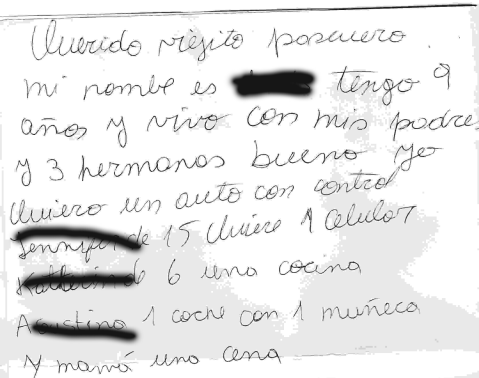 Querido viejito pascuero
mi nombe es tengo 9
años y vivo con mis padres
y 3 hermanos bueno yo
Quiero un auto con control
de 15 Quiere 1 celular
de 6 una cocina
1 coche con 1 muñeca
y mamá una cena